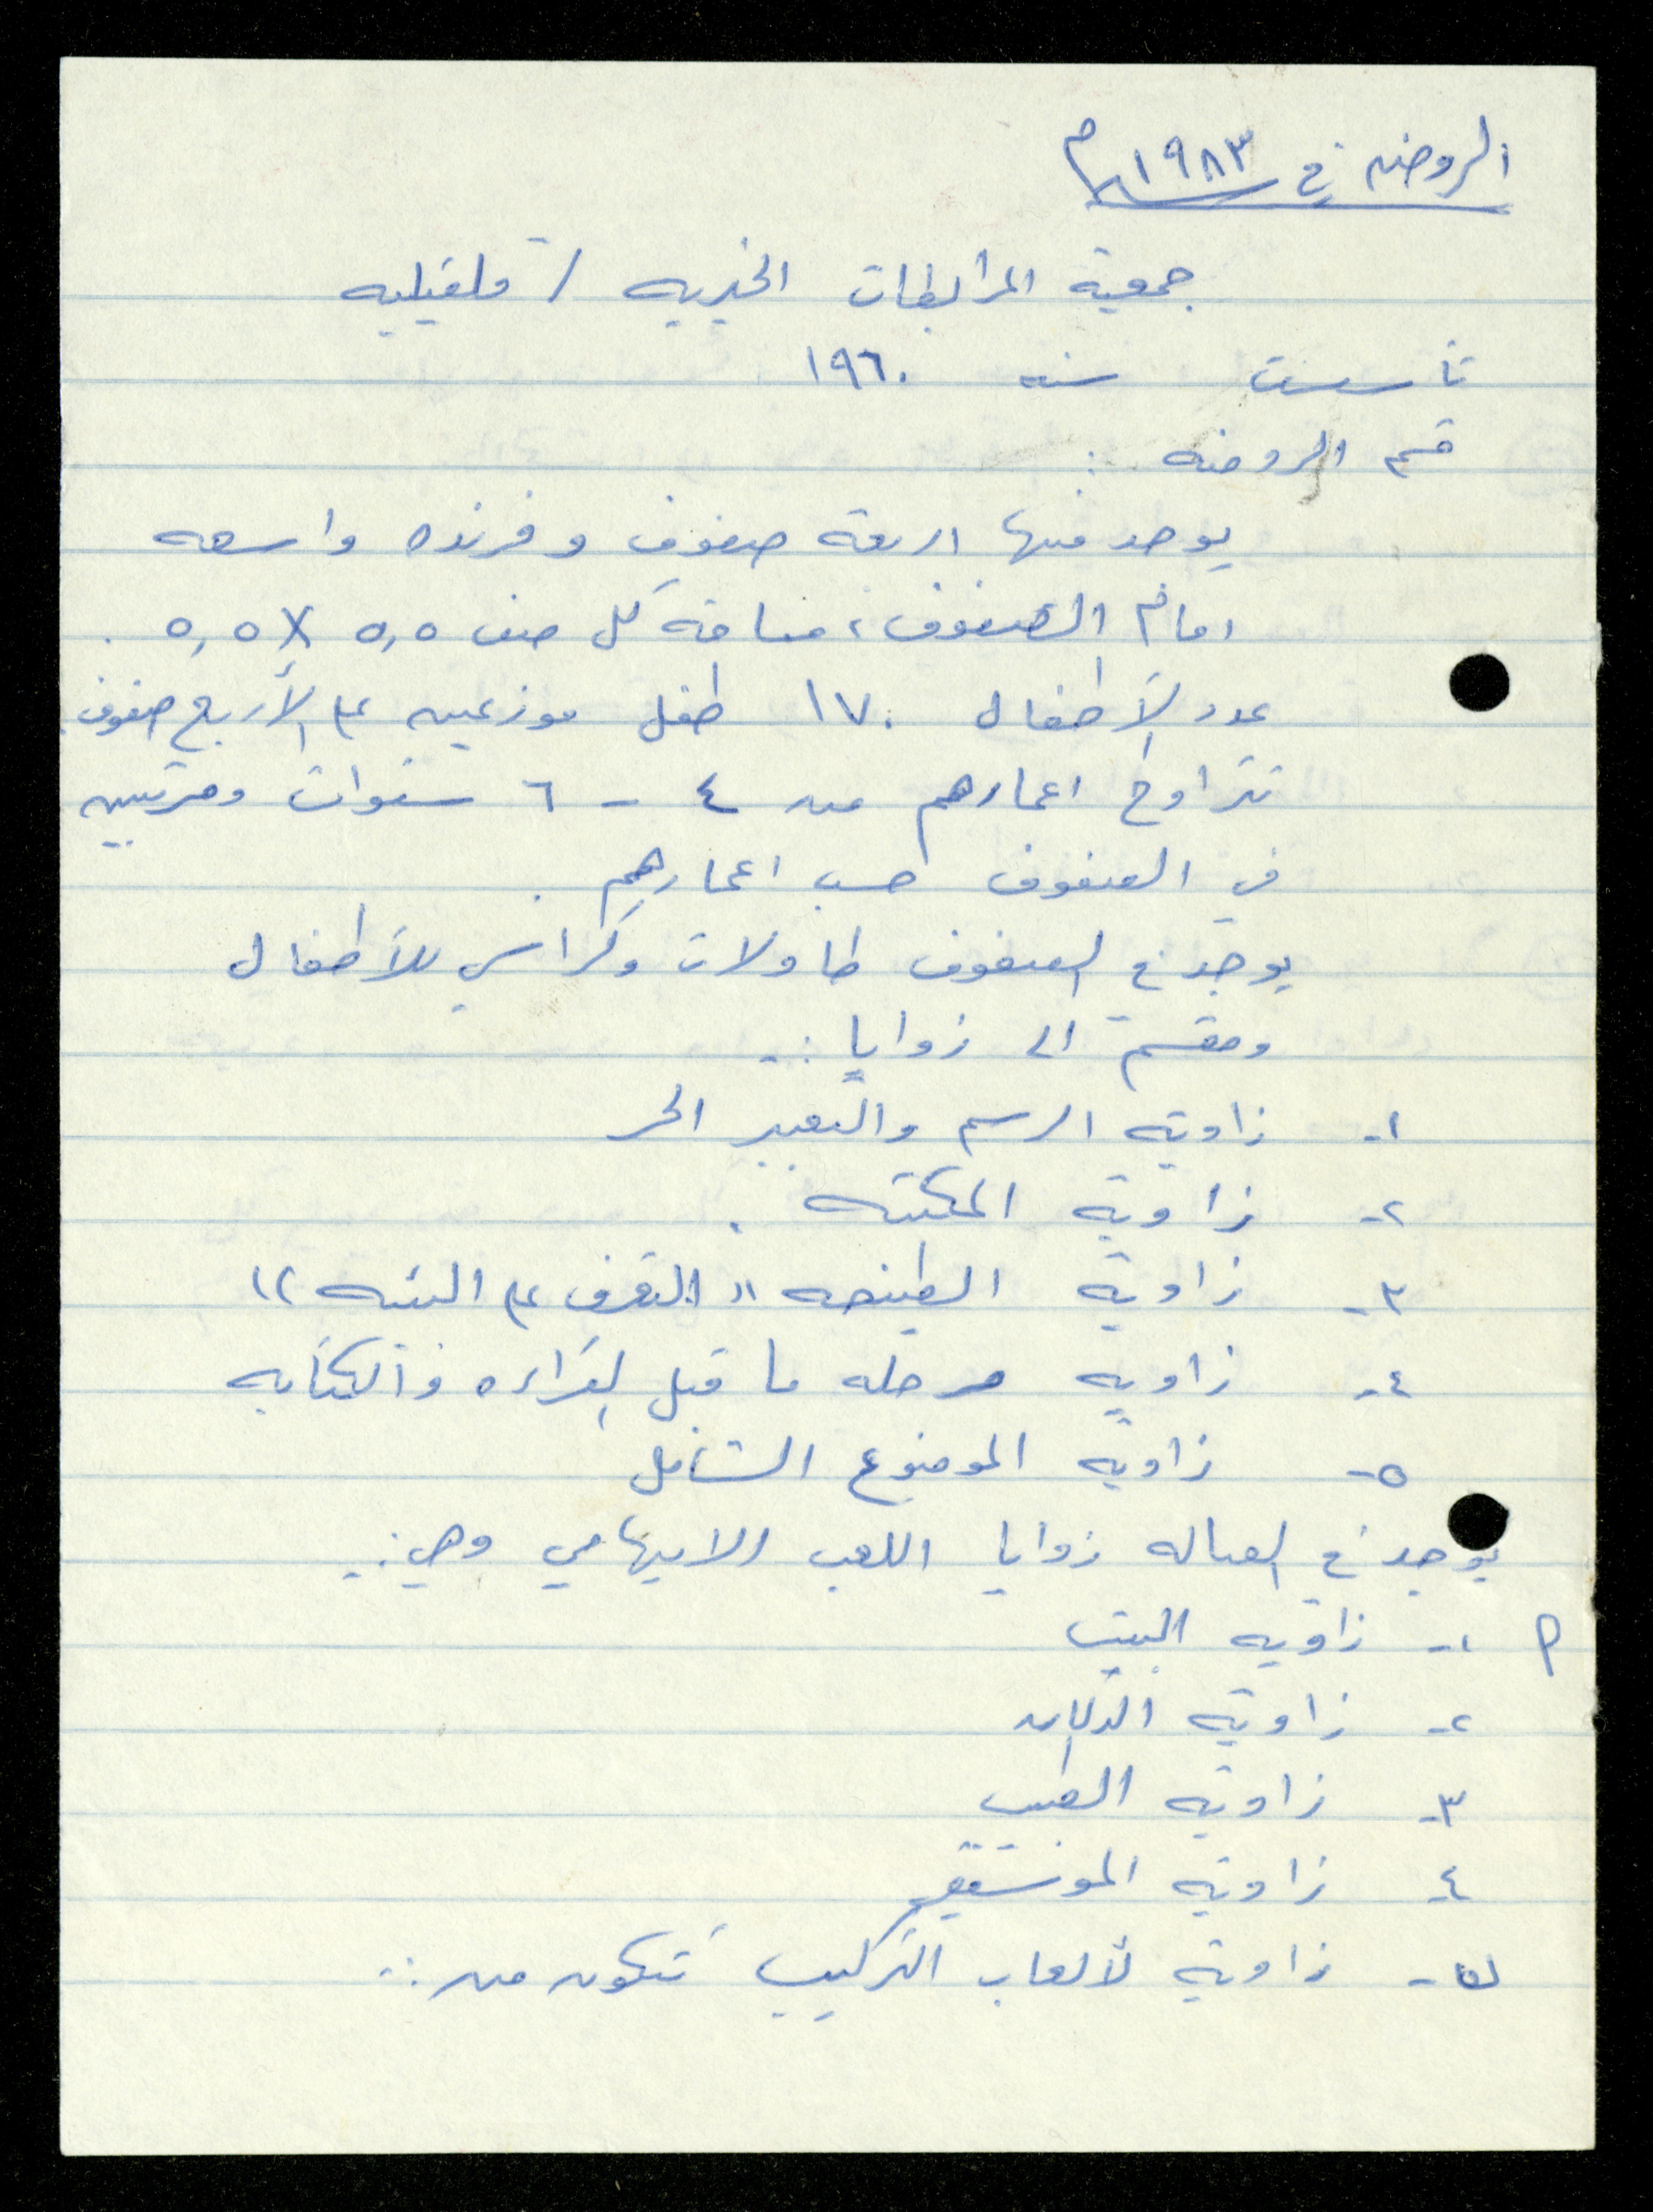 الروضه في ١٩٨٣م
جمعية المرابطات الخيريه / قلقيليه
تأسست سنه ١٩٦٠
قسم الروضه :
يوجد فيها اربعة صفوف وفرنده واسعه
امام الصفوف، مساحة كل صف ٥,٥ X ٥,٥ .
عدد الأطفال ١٧٠ طفل موزعين على الأربع صفوف.
تتراوح اعمارهم من ٤ - ٦ سنوات ومرتبين
في الصفوف حسب اعمارهم .
يوجد في الصفوف طاولات وكراسي للأطفال
ومقسم الى زوايا :-
١- زاوية الرسم والتعبير الحر
٢- زاوية المكتبه .
٣- زاوية الطبيعه "التعرف على البيئه"
٤- زاويه مرحله ما قبل القراءه والكتابه
٥- زاوية الموضوع الشامل
يوجد في الصاله زوايا اللعب الايهامي وهي :-
م ١- زاويه البيت
٢- زاوية الدكان
٣- زاوية الطب
٤- زاوية الموسيقى
٥- زاوية لألعاب التركيب تتكون من :-